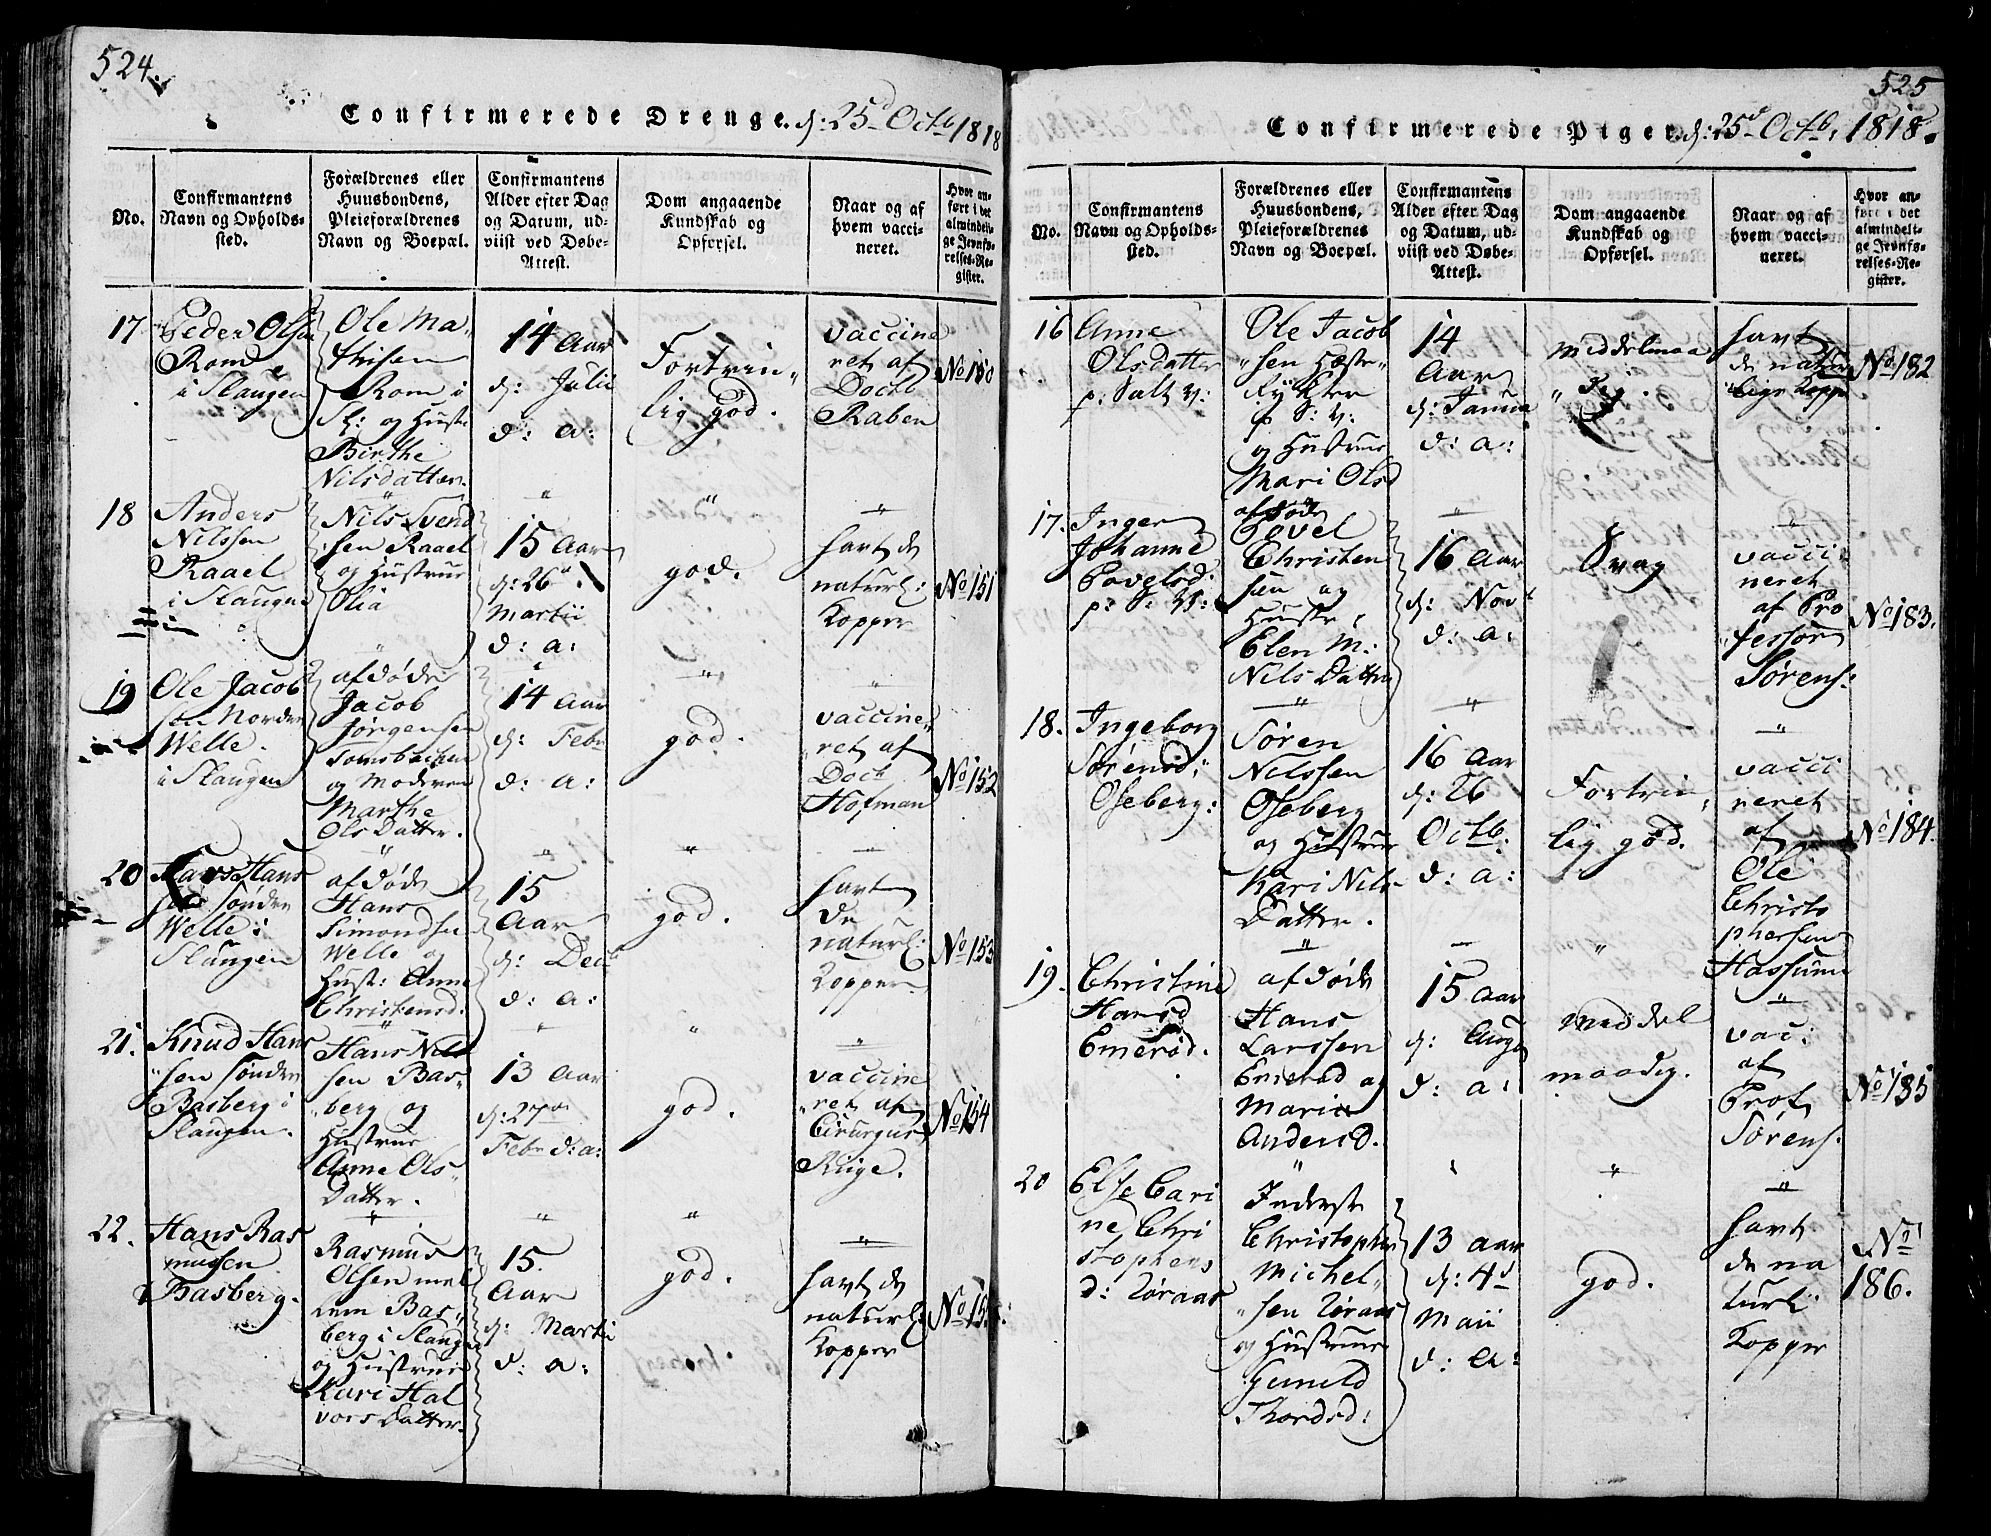 524.
Confirmerede Drenge. d: 25d Octb 1818
No.
Confirmantens
Navn og Opholds-
sted.
Forældrenes eller
Huusbondens,
Pleieforældrenes
Navn og Boepæl.
Confirmantens
Alder efter Dag
og Datum, ud-
viist ved Døbe-
Attest.
Dom angaaende
Kundskab og
Opførsel.
Naar og af
hvem vacci-
neret.
Hvor an-
ført i det
almindeli-
ge Jevnfø-
relses-Re-
gister.
17
Peder Olsen
Rom
i Slaugen
Ole Ma-
thisen
Rom i
Sl: og Hustr
Birthe
Nilsdatter.
14 Aar
d: Julii
d: a:
Fortrin„
lig god.
vaccine
ret af
Doct
Raben
No 150
18
Anders
Nilssen
Raael
i Slaugen
Nils Svend
sen Raael
og Hustrue
Olia
15 Aar
d: 26
Martii
d: a:
god.
havt de
naturl:
Kopper
No 151
19
Ole Jacob
sen Nordre
Welle.
i Slaugen
afdøde
Jacob
Jørgensen
Tomsbachen
og Moderen
Marthe
Ols Datter.
14 Aar
d: Febr
d: a:
god.
vaccine„
ret af
Doct
Hofman
No 152
20
Lars Hans
sen Sønden
Welle i
Slaugen
afdøde
Hans
Simondsen
Welle og
Hust: Anne
Christensd.
15
Aar
d: Decb
d: a:
god.
havt
de
naturl:
Kopper
No 153
21.
Knud Hans
„sen Sønden
Basberg i
Slaugen.
Hans Nils
sen Bas„
„berg og
Hustrue
Anne Ols
Datter.
13 Aar
d: 27de
Febr d: a:
god.
vaccine
„ret af
Cirurgus
Ruge.
No 154
22.
Hans Ras
mussen
Basberg.
Rasmus
Olsen mel
lem Bas„
berg i Slaugen
og Hustrue
Kari Hal
vors Datter.
15.
Aar
d: Martii
d: a:
god.
havt de
naturl:
Kopper
525
Confirmerede Piger. d: 25d Octb, 1818.
No.
Confirmantens
Navn og Opholds-
sted.
Forældrenes eller
Huusbondens,
Pleieforældrenes
Navn og Boepæl.
Confirmantens
Alder efter Dag
og Datum, ud-
viist ved Døbe-
Attest.
Dom angaaende
Kundskab og
Opførsel.
Naar og af
hvem vacci-
neret.
Hvor an-
ført i det
almindeli-
ge Jevnfø-
relses-Re-
gister.
16
Anne
Olsdatter
p: Salt V:
Ole Jacob
„sen Hæste„
Rykter
p S: V:
og Hustrue
Mari Olsd
14
Aar
d: Janua
d: a:
Middelmaa
„dig.
havt
de natur
„lige Kopp
No 182
17.
Inger
Johanne
Povelsd:
p: S: V:
afdøde
Povel
Christen
sen og
Hustr:
Elen M:
Nils Datter
16 Aar
d: Novb
d: a:
Svag
vacci
neret
af Pro
„fessor
Sørens:
No 183.
18.
Ingeborg
Sørensd:
Oseberg:
Søren
Nilssen
Oseberg
og Hustrue
Kari Nils
Datter.
16 Aar
d: 26
Octb:
d: a:
Fortrin„
lig god.
vacci
neret
af
Ole
Christo
phersen
Hassum
No 184.
19.
Christine
Hansd
Emerød.
afdøde
Hans
Larssen
Emerød og
Marie
Andersd.
15 Aar
d: Augt
d: a:
Middel
maadig.
vac:
af
Prof
Sørens:
No 185
20
Else Cari
ne Chri
stophers
d: Røraas
Inderst
Christopher
Michel„
„sen Røraas
og Hustrue
Gunild
Thordsd:
13 Aar
d: 4d
Maii
d: a:
god.
havt
de na
turl:
Kopper
No
186.